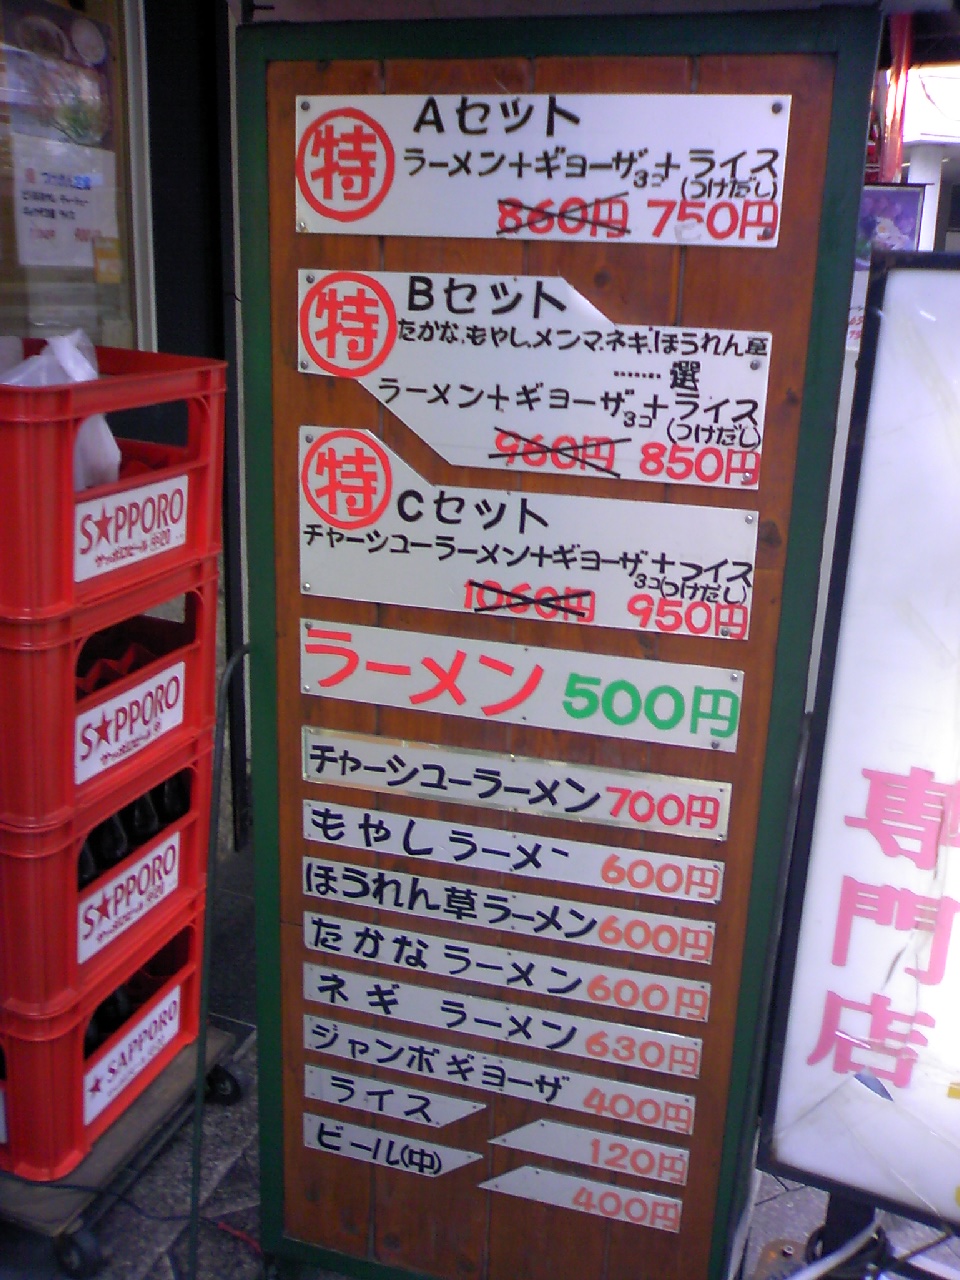 特
Aセット
ラーメン+ギョーザ3コ+ライス
(つけだし)
860円 750円
特
Bセット
たかな、もやし、メンマ、ネギ、ほうれん草
……選
ラーメン+ギョーザ3コ+ライス
(つけだし)
960円 850円
特
Cセット
チャーシューラーメン+ギョーザ3コ+ライス
(つけだし)
1060円 950円
ラーメン 500円
チャーシューラーメン 700円
もやしラーメン 600円
ほうれん草ラーメン 600円
たかなラーメン 600円
ネギ ラーメン 630円
ジャンボギョーザ 400円
ライス 120円
ビール(中) 400円
S★PPORO
サッポロビール 中20
S★PPORO
サッポロビール
S★PPORO
サッポロビール
★SAPPORO
専門店